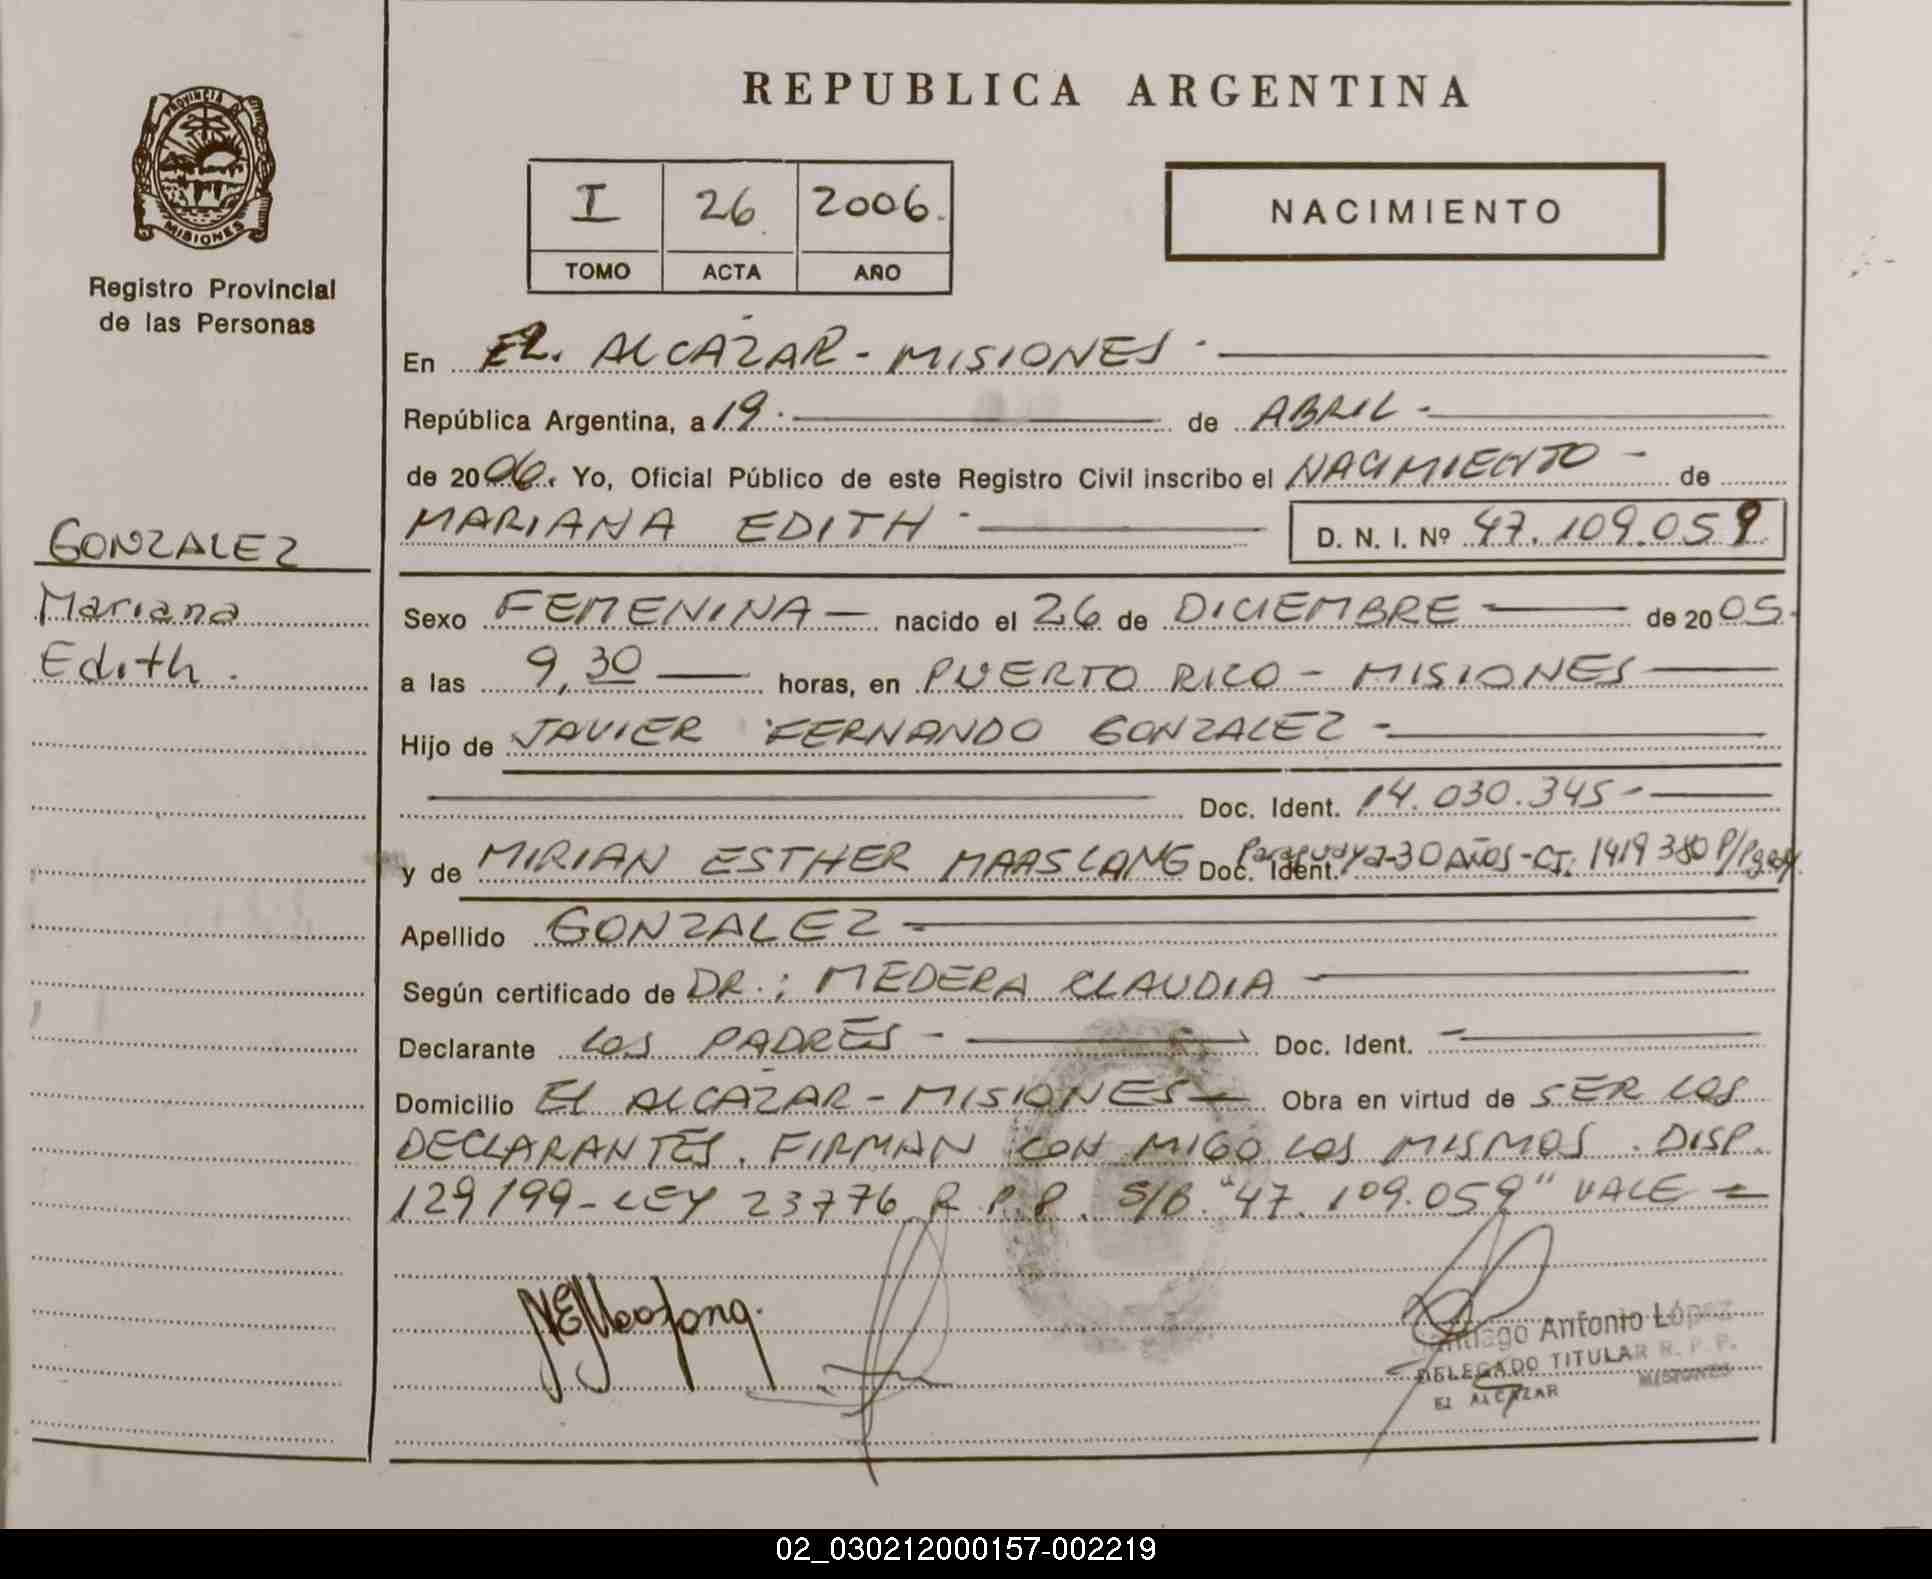 REPUBLICA ARGENTINA
PROVINCIA DE
MISIONES
Registro Provincial
de las Personas
I 26 2006.
TOMO ACTA AÑO
NACIMIENTO
En EL ALCAZAR - MISIONES -
República Argentina, a 19. de ABRIL -
de 2006. Yo, Oficial Público de este Registro Civil inscribo el NACIMIENTO - de
MARIANA EDITH - D. N. I. Nº 47.109.059
GONZALEZ
Mariana
Edith.
Sexo FEMENINA - nacido el 26 de DICIEMBRE - de 2005.
a las 9,30 horas, en PUERTO RICO - MISIONES
Hijo de JAVIER FERNANDO GONZALEZ -
Doc. Ident. 14.030.345 -
y de MIRIAN ESTHER MAASLANG Doc. Ident. Paraguaya-30 AÑOS - CI. 1419380 P/Pguay.
Apellido GONZALEZ -
Según certificado de DR.: MEDERA CLAUDIA
Declarante LOS PADRES - Doc. Ident. -
Domicilio El ALCAZAR - MISIONES - Obra en virtud de SER LOS
DECLARANTES. FIRMAN CON MIGO LOS MISMOS. DISP.
129/99 - LEY 23776 R.P.P. S/B. "47.109.059" VALE -
Santiago Antonio López
DELEGADO TITULAR R. P. P.
El ALCAZAR MISIONES
02_030212000157-002219